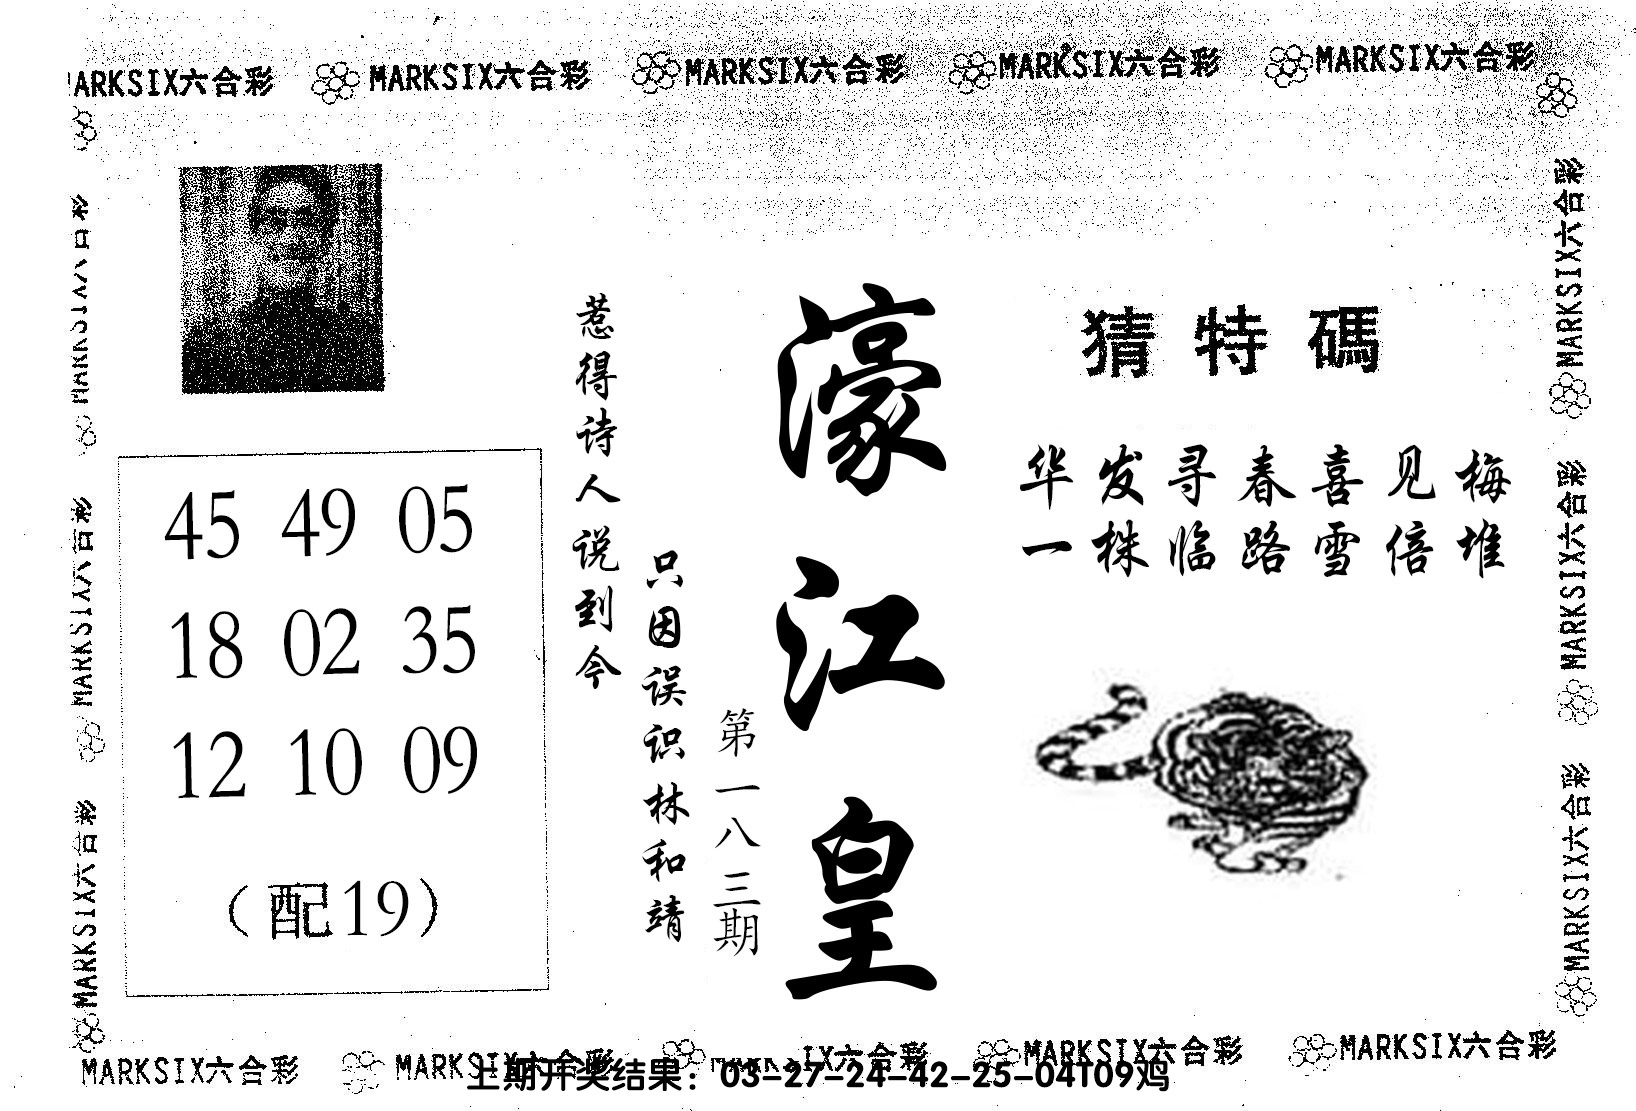 MARKSIX六合彩 MARKSIX六合彩 MARKSIX六合彩 MARKSIX六合彩
猜特碼
华发寻春喜见梅
一株临路雪倍堆
濠江皇
第一八三期
只因误识林和靖
惹得诗人说到今
45 49 05
18 02 35
12 10 09
（配19）
MARKSIX六合彩
MARKSIX六合彩
MARKSIX六合彩
MARKSIX六合彩
MARKSIX六合彩
MARKSIX六合彩 MARKSIX六合彩 MARKSIX六合彩 MARKSIX六合彩
上期开奖结果：03-27-24-42-25-04T09鸡